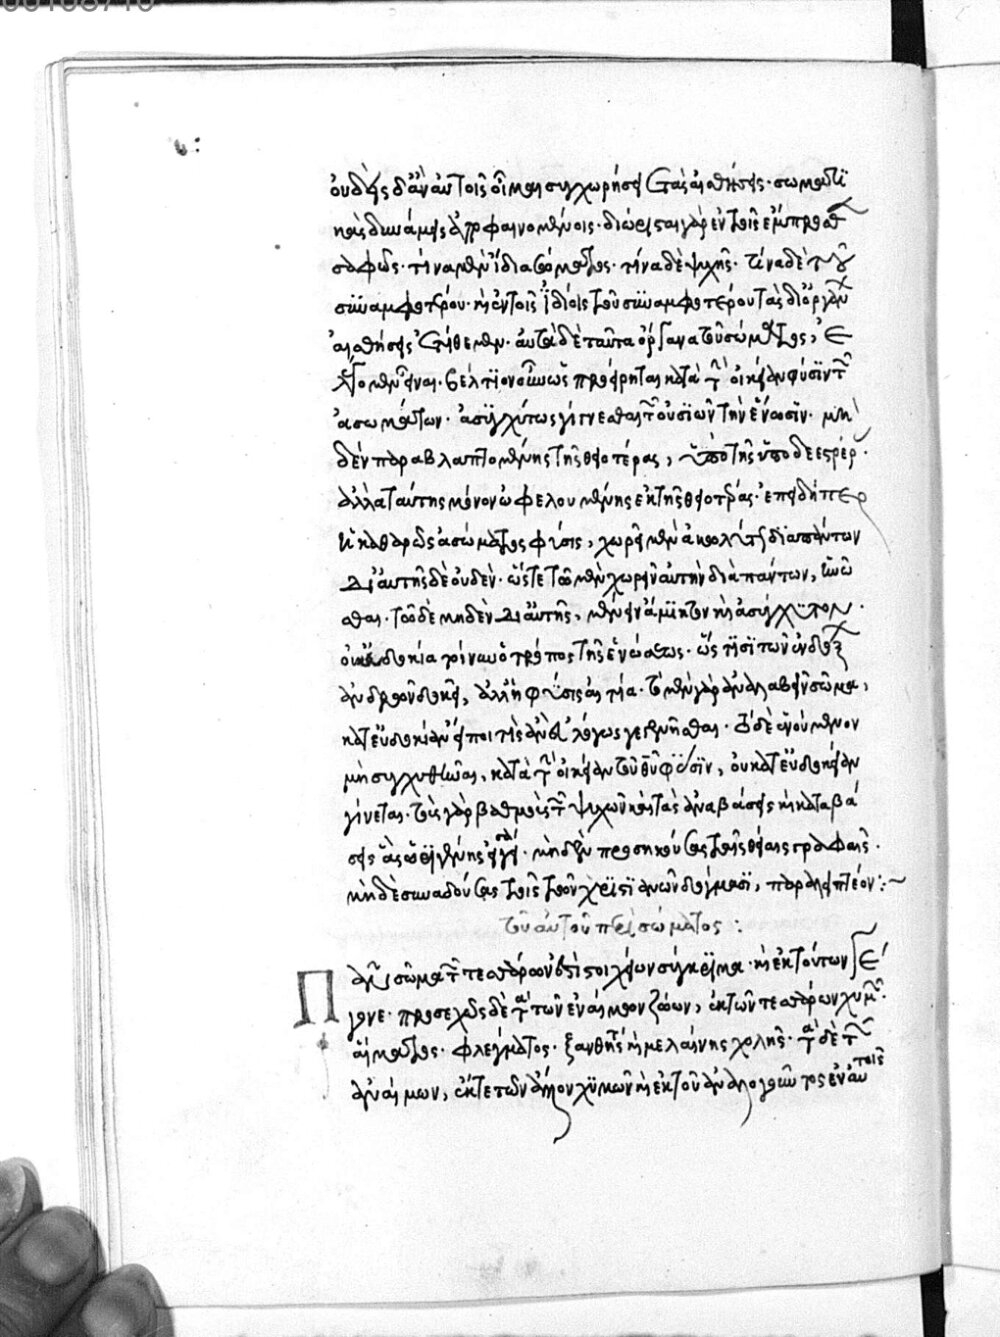 οὐδεὶς δ' ἂν αὐτοῖς οἶμαι συγχωρήσει τὰς αἰσθήσεις. σωματι
κὰς δυνάμεις ἀποφαινομένοις. διώρισται γὰρ ἐν τοῖς ἔμπροσθ
σαφῶς. τίνα μὲν ἴδια σώματος. τίνα δὲ ψυχῆς. τίνα δὲ τοῦ
συναμφοτέρου. καὶ ἐν τοῖς ἰδίοις τοῦ συναμφοτέρου τὰς δι' ὀργάνων
αἰσθήσεις ἐτίθεμεν. αὐτὰ δὲ ταῦτα ὄργανα τοῦ σώματος, ἐ
λέγομεν εἶναι. βέλτιον οὖν ὡς προείρηται κατὰ τὴν οἰκείαν φύσιν τῶν
ἀσωμάτων. ἀσυγχύτως γίγνεσθαι τῶν οὐσιῶν τὴν ἕνωσιν. μη
δὲν παραβλαπτομένης τῆς θειοτέρας, ὑπὸ τῆς ὑποδεεστέρας.
ἀλλὰ ταύτης μόνον ὠφελουμένης ἐκ τῆς θειοτέρας. ἐπειδήπερ
ἡ καθαρῶς ἀσώματος φύσις, χωρεῖ μὲν ἀκωλύτως διὰ πάντων
δι' αὐτῆς δὲ οὐδέν. ὥστε τῷ μὲν χωρεῖν αὐτὴν διὰ πάντων, ἡνῶ
σθαι. τῷ δὲ μηδὲν δι' αὐτῆς, μένειν ἄμικτον καὶ ἀσύγχυτον.
οὐκ εὐδοκία τοίνυν ὁ τρόπος τῆς ἑνώσεως. ὥς τισι τῶν ἐνδόξων
ἀνδρῶν δοκεῖ, ἀλλ' ἡ φύσις αἰτία. τὸ μὲν γὰρ ἀναλαβεῖν σῶμα,
κατ' εὐδοκίαν εἴποι τις ἂν εὐλόγως γεγενῆσθαι. τὸ δὲ ἑνούμενον
μὴ συγχυθῆναι, κατὰ τὴν οἰκείαν τοῦ θεοῦ φύσιν, οὐ κατ' εὐδοκίαν
γίνεται. τοὺς γὰρ βαθμοὺς τῶν ψυχῶν καὶ τὰς ἀναβάσεις καὶ καταβά
σεις ἃς ὠριγένης εἰσάγει. μηδὲν προσηκούσας ταῖς θείαις γραφαῖς.
μηδὲ συναδούσας τοῖς τῶν χριστιανῶν δόγμασι, παραλειπτέον:~
τοῦ αὐτοῦ περὶ σώματος:
Πᾶν σῶμα τῶν τεσσάρων ἐστὶ στοιχείων σύγκριμα. καὶ ἐκ τούτων γέ
γονε. προσεχῶς δὲ τὰ τῶν ἐναίμων ζώων, ἐκ τῶν τεσσάρων χυμῶν.
αἵματος. φλέγματος. ξανθῆς καὶ μελαίνης χολῆς. τὰ δὲ τῶν
ἀναίμων, ἔκ τε τῶν ἄλλων χυμῶν καὶ ἐκ τοῦ ἀναλογοῦντος ἐν αὐτοῖς